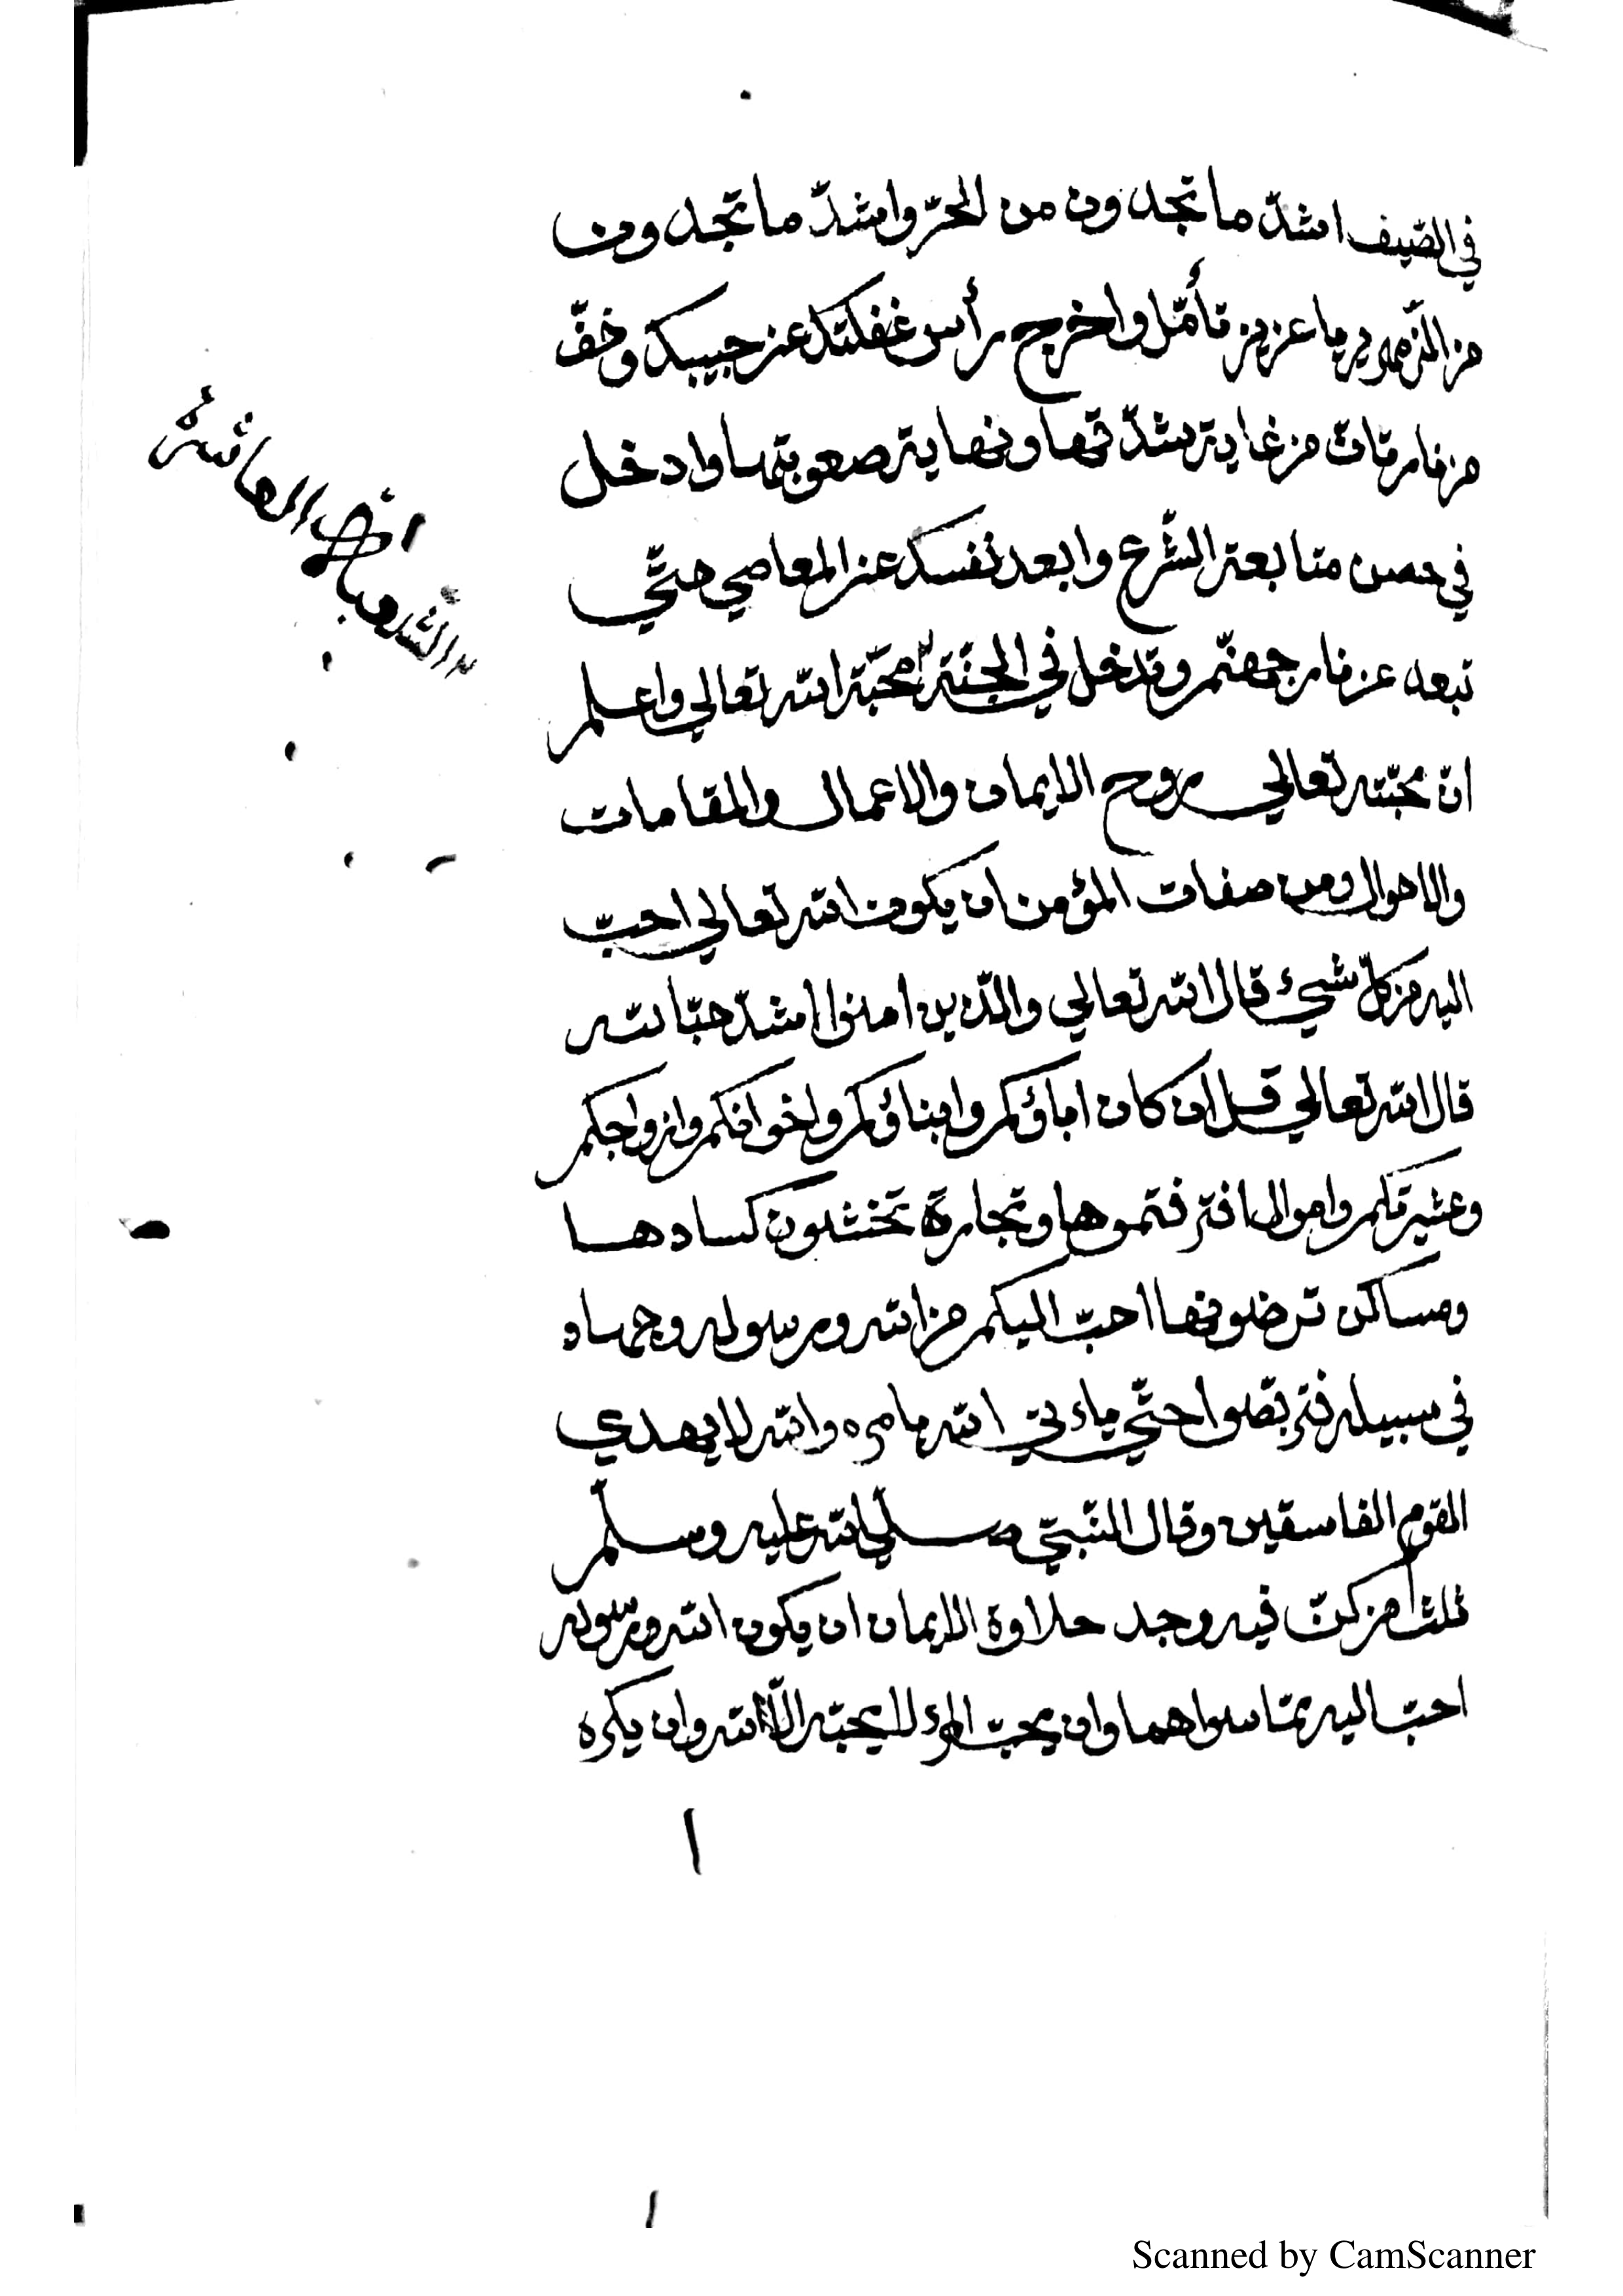 في الصّيف اشدّ ما تجدون من الحرّ واشدّ ما تجدون
من الزّمهرير يا عزيز تأمّل واخرج رأس غفلتك عن جيبك وخف
من نار تأت من غاية شدّتها ونهاية صعوبتها وادخل
في حصن متابعة الشّرع وابعد نفسك عن المعاصي حتّي
تبعد عن نار جهنّم وتدخل في الجنّة محبّة الله تعالي واعلم
انّ محبّته تعالي روح الايمان والاعمال والمقامات
والاحوال ومن صفات المؤمن ان يكون الله تعالي احبّ
اليه من كلّ شيئ قال الله تعالي والّذين امنوا اشدّ حبّا لله
قال الله تعالي قل ان كان اباؤكم وابناؤكم واخوانكم وازواجكم
وعشيرتكم واموال اقترفتموها وتجارة تخشون كسادها
ومساكن ترضونها احبّ اليكم من الله ورسوله وجهاد
في سبيله فتربّصوا حتّي ياءتي الله بامره والله لا يهدي
القوم الفاسقين وقال النّبيّ صلّي الله عليه وسلّم
ثلث من كنّ فيه وجد حلاوة الايمان ان يكون الله ورسوله
احبّ اليه ممّا سواهما وان يحبّ المرء لا يحبّه الّا لله وان يكره
Scanned by CamScanner